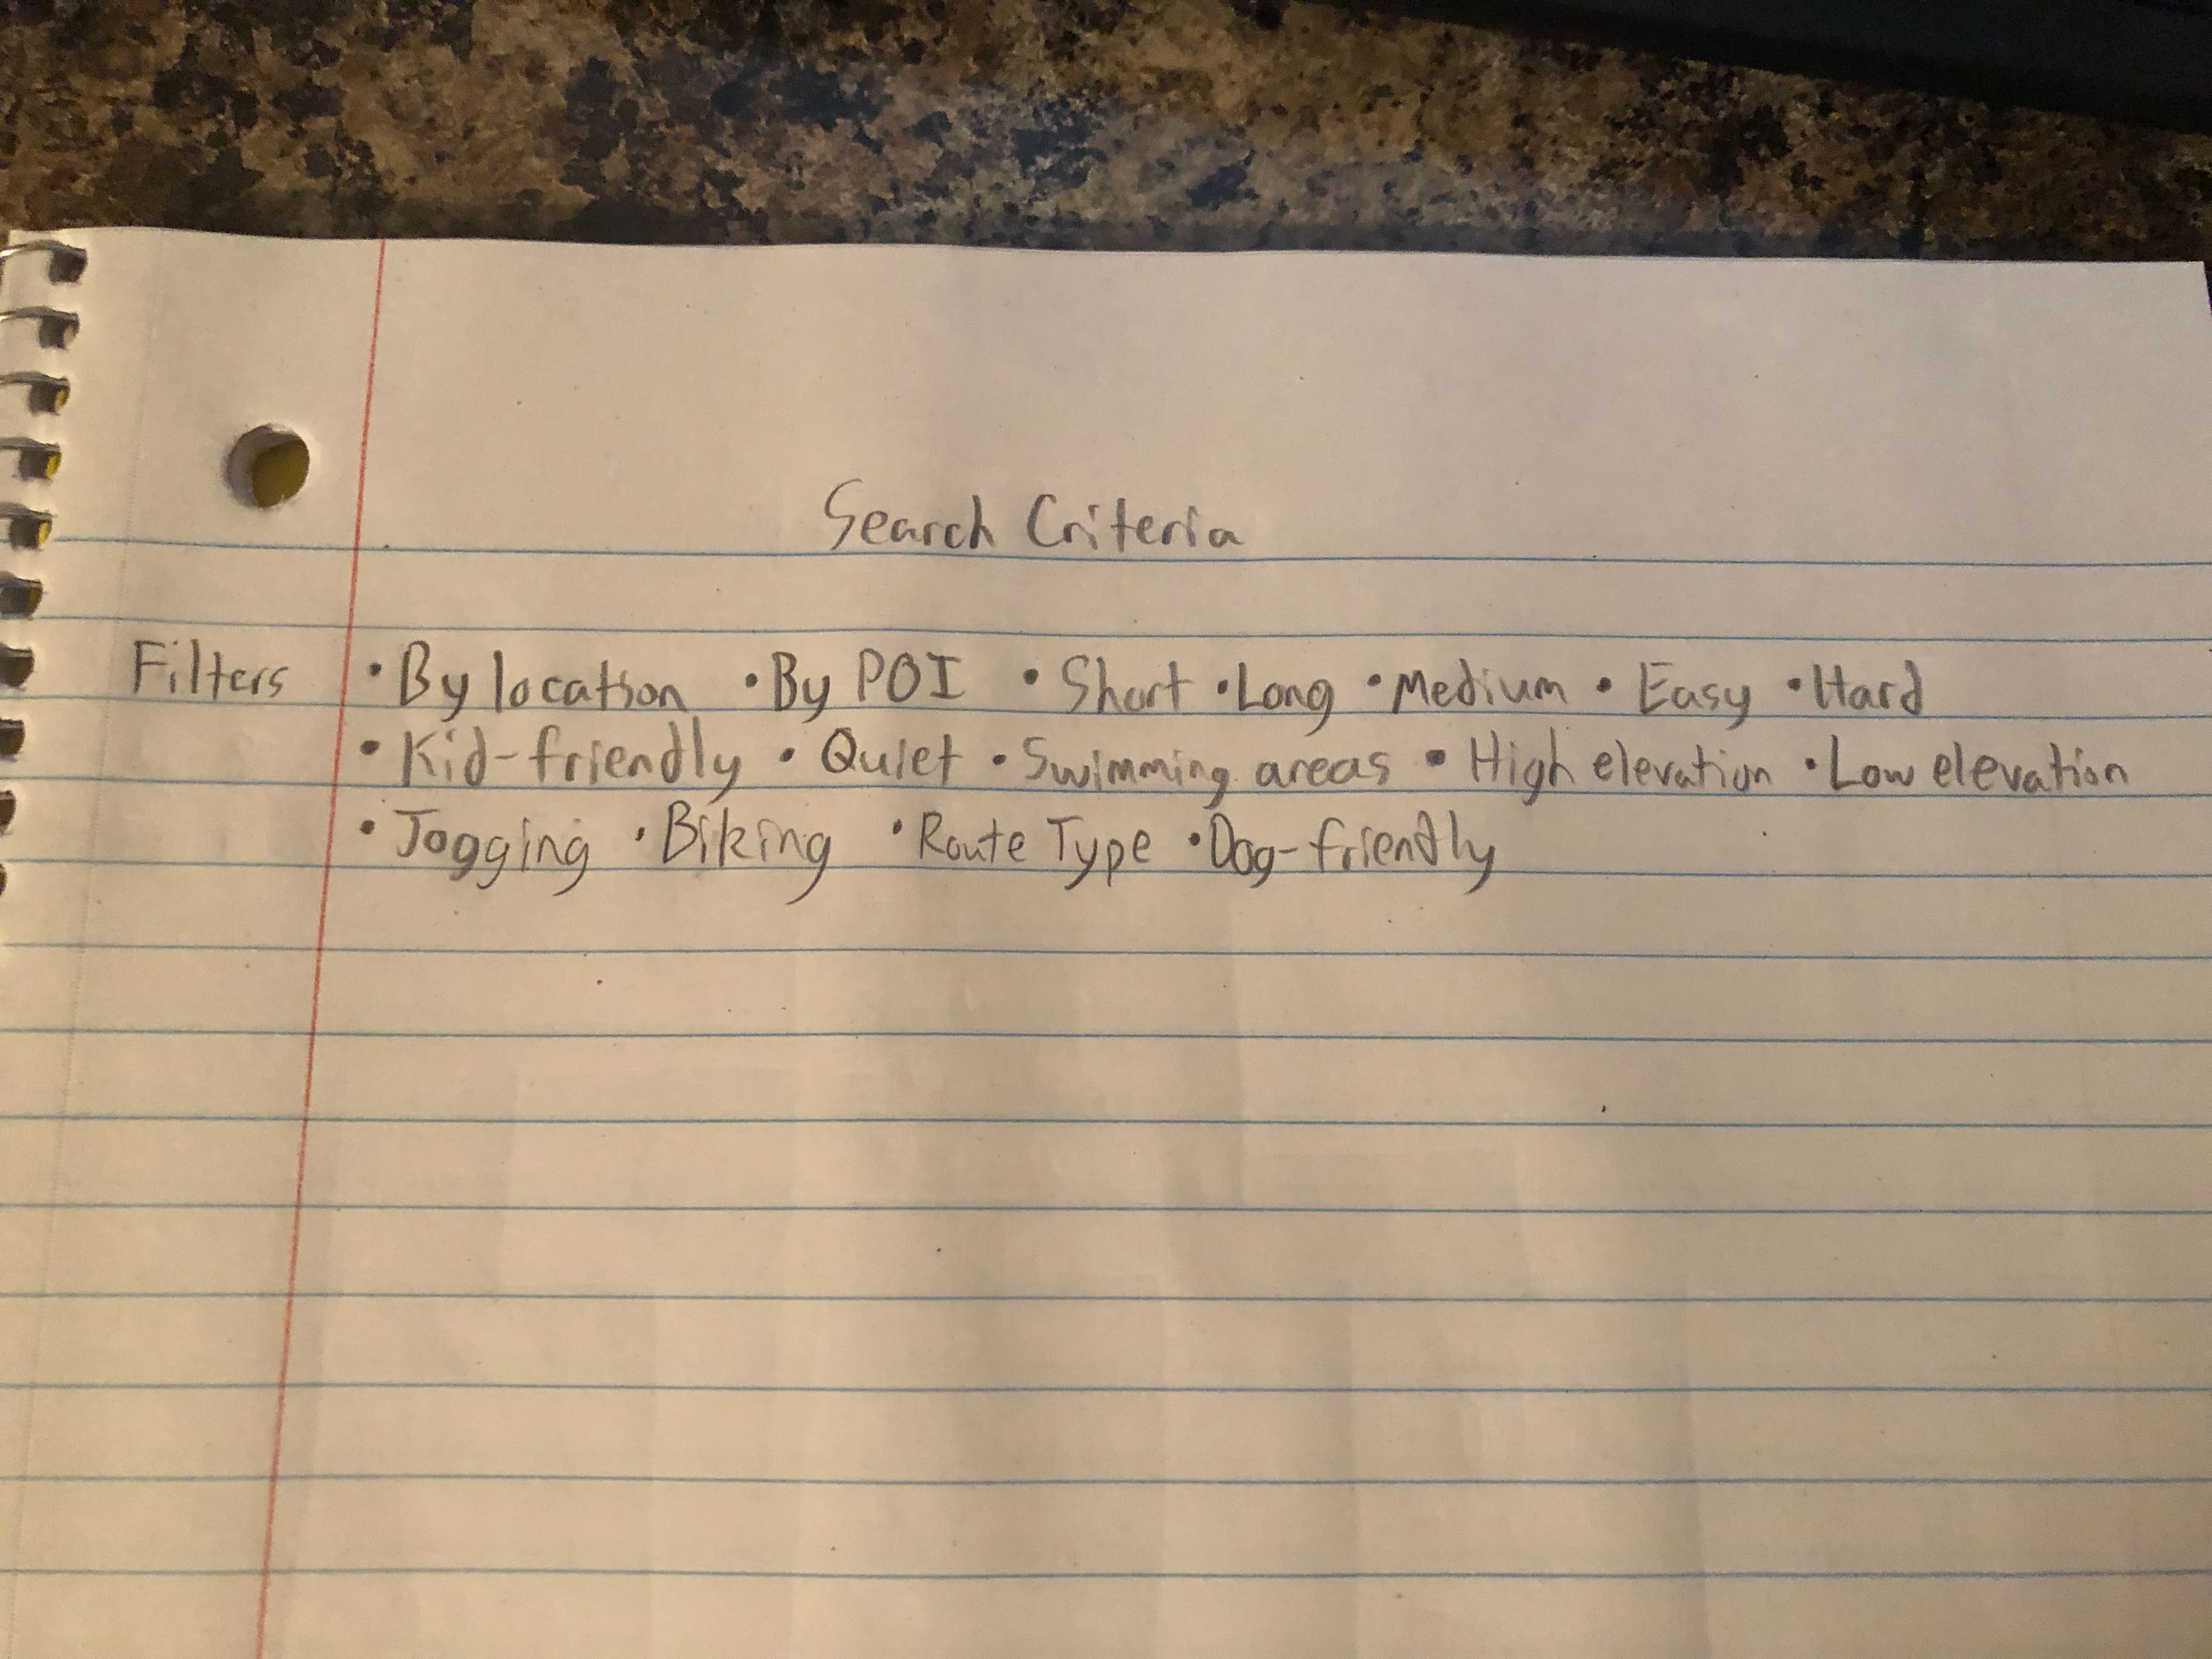 Search Criteria
Filters • By location • By POI • Short • Long • Medium • Easy • Hard
• Kid-friendly • Quiet • Swimming areas • High elevation • Low elevation
• Jogging • Biking • Route Type • Dog-friendly